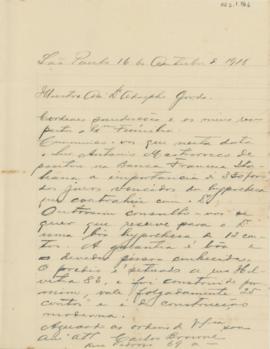 São Paulo 16 de Outubro de 1918
Illustre Am. Dr. Adolpho Gordo.
Cordeaes saudações e os meus res-
peitos à Exma Familia.
Communico-vos que nesta data
o Snr. Antonio Mastrorosa de-
positou na Banca Franceza Ita-
liana a importancia de
dos juros vencidos da hypotheca
que contrahiu com
Outrosim consulto-vos se
quer que reserve para o D
uma boa hypotheca de 15
contos. A garantia é bôa e
o devedor pessoa conhecida.
O predio é situado a rua Hel-
vetia 86, e foi construido por
mim, vale folgadamente 25
contos e é de construcção
moderna.
Aguardo as ordens de V. Cia, sou
Am. att.
Carlos Browne